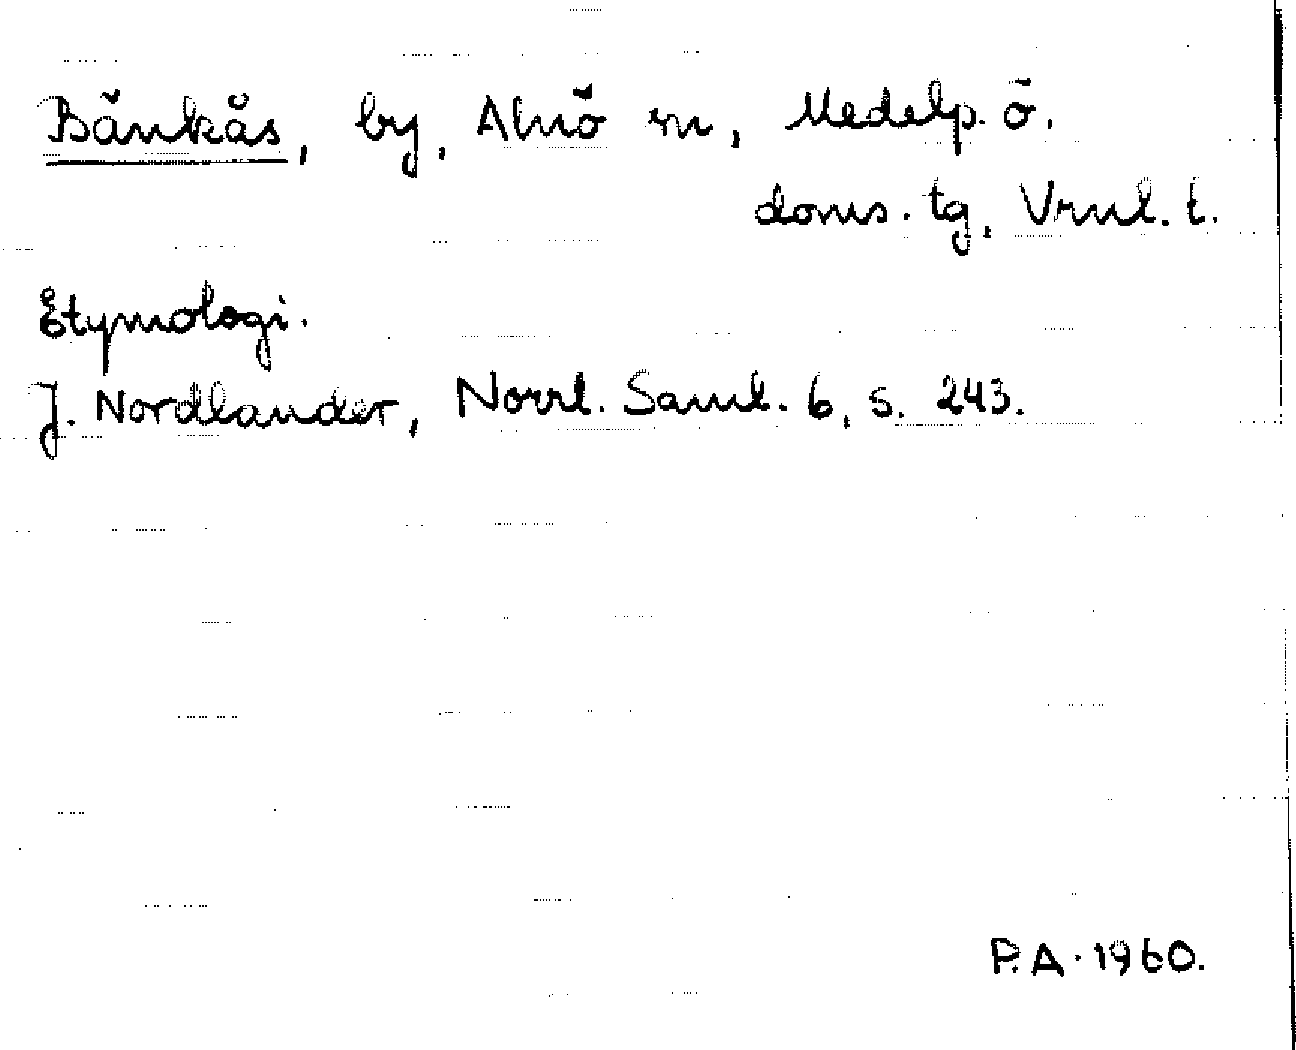 Bänkås, by, Alnö sn, Medelp. ö.
doms. tg, Vrnl. l.
Etymologi.
J. Nordlander, Norrl. Saml. 6, s. 243.
P.A. 1960.